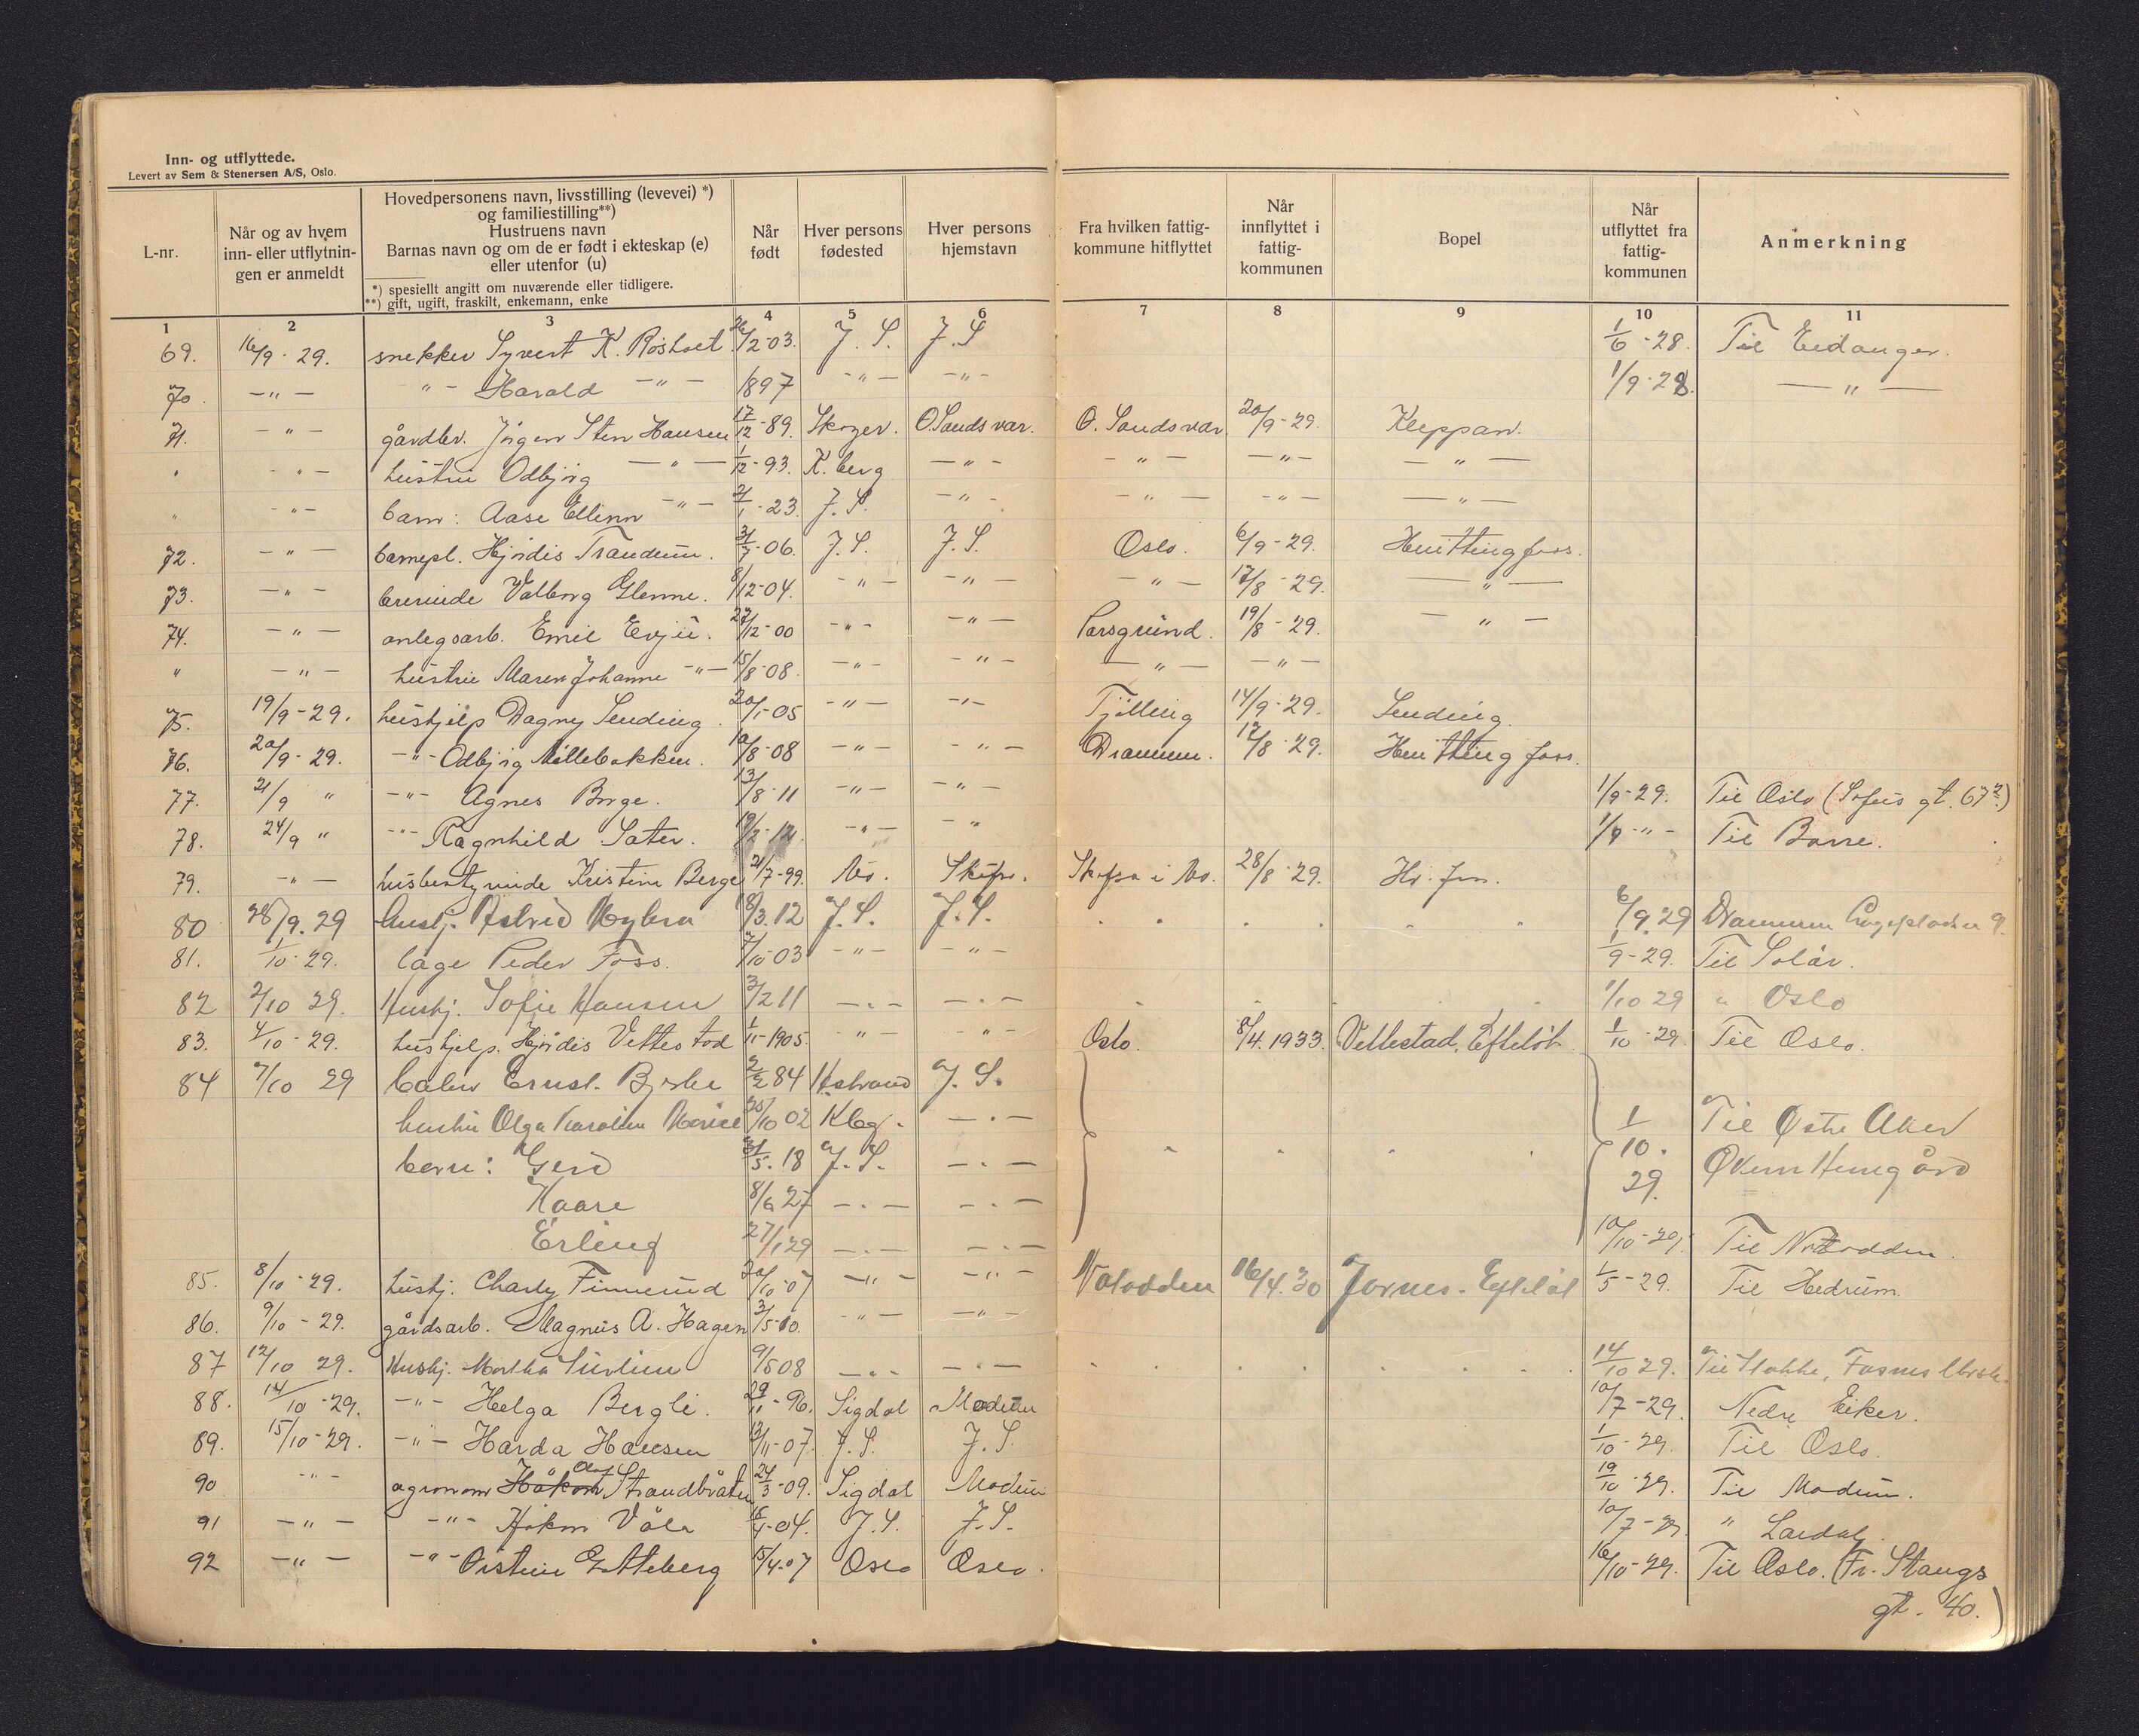 Inn- og utflyttede.
Levert av Sem & Stenersen A/S, Oslo.
L-nr.
Når og av hvem inn- eller utflytnin- gen er anmeldt
Hovedpersonens navn, livsstilling (levevei) *)
og familiestilling**)
Hustruens navn
Barnas navn og om de er født i ekteskap (e)
eller utenfor (u)
*) spesiellt angitt om nuværende eller tidligere.
**) gift, ugift, fraskilt, enkemann, enke
Når født
Hver persons fødested
Hver persons hjemstavn
Fra hvilken fattig- kommune hitflyttet
Når innflyttet i fattig- kommunen
Bopel
Når utflyttet fra fattig- kommunen
Anmerkning
1 2 3 4 5 6 7 8 9 10 11
69. 16/9 - 29. snekker Syvert K. 26/2-03. J. S. J. S 1/6 - 28. Til Eidanger.
70. -"- "- Harald -"- 1897 -"- -"- 1/9-28. -"-
71. -"- gårdbr. Jörgen Sten Hansen 17/12-89. Skoger. O. Sandsvar. O. Sandsvar 20/9-29. Kleppan.
" -"- hustru Odbjörg -"- 1/12-93. K.berg -"- -"- -"- -"-
" -"- barn: Aase Ellinor -"- 2/1-23. J. S. -"- -"- -"- -"-
72. -"- barnepl. Hjördis Trandum. 3/7-06. J. S. J. S. Oslo. 6/9-29. Hvittingfoss.
73. -"- Valborg Glenne. 8/12-04. -"- -"- -"- 17/8-29. -"-
74. -"- anlegsarb. Emil Evju. 27/12-00 -"- -"- Porsgrund. 19/8-29. -"-
" -"- hustru Maren Johanne -"- 15/8-08. -"- -"- -"- -"-
75. 19/9-29. hushjelp Dagny Sending. 20/1-05 -"- -"- Tjölling 14/9-29. Sending.
76. 20/9-29. -"- Odbjörg Möllebakken. 10/8-08 -"- -"- Drammen. 17/8-29. Hvittingfoss.
77. 21/9 " -"- Agnes Borge. 13/8-11 -"- -"- 1/9-29. Til Oslo (Sofies gt. 67²)
78. 24/9 " -"- Ragnhild Sater. -"- -" 1/9-"- Til Borre.
79. -"- husbestyrinde Kristine Berge 21/7-99. Mo. i Mo. 28/8-29.
80 28/9. 29 Husj. Astrid Myhra 18/3. 12 J. S. J. S. 6/9. 29 Drammen 9.
81. 1/10-29. läge Peder Foss. 7/10-03 -"- -"- 1/9-29. Til Solör.
82 2/10 29. Hushj. Sofie Hansen 3/2 11 -"- -"- 1/10 29 " Oslo
83. 4/10-29. hushjelp. Hjördis Vettestad 1/11-1905. -"- -"- Oslo. 8/4. 1933. Vettestad, Efteløt 1/10-29 Til Oslo.
84 7/10 29 Ernst. 2/2 84 J. S.
hustru Olga Karoline 02 Kbg. -"-
barn: Gerd 31/5. 18 J. S. -"- 1/10. 29. Til Østre Aker
Kaare 8/6 27 -"- -"- Økern Hemgård
Erling 27/1 29 -"- -"- 10/10-29. Til Notodden.
85. 8/10-29. hushj. Charly Finnerud 20/10-07 -"- -"- Notodden 16/4.30 Jornes. Efteløt 1/5-29. Til Hedrum.
86. 9/10-29. gårdsarb. Magnus A. Hagen 3/5-10. -"- -"-
87 12/10 29. Hushj. Martha 9/5 08 -"- -"- 14/10 29. Til
88. 14/10-29. -"- Helga Bergli. 29/11-96. Sigdal Modum 10/7-29. Nedre Eiker.
89. 15/10-29. -"- Harda Hansen 13/11-07. J. S. J. S. 1/10-29. Til Oslo.
90 -"- agronom Håkon Olaf Strandbråten 24/3-09. Sigdal Modum 19/10-29. Til Modum.
91 -"- -"- Håkon Våla J. S. J. S. 10/7-29. " Lardal.
92 -"- -"- Öistein Gotteberg 15/4-07 Oslo Oslo. 16/10-29. Til Oslo. (Fr. Stangs
gt. 40.)